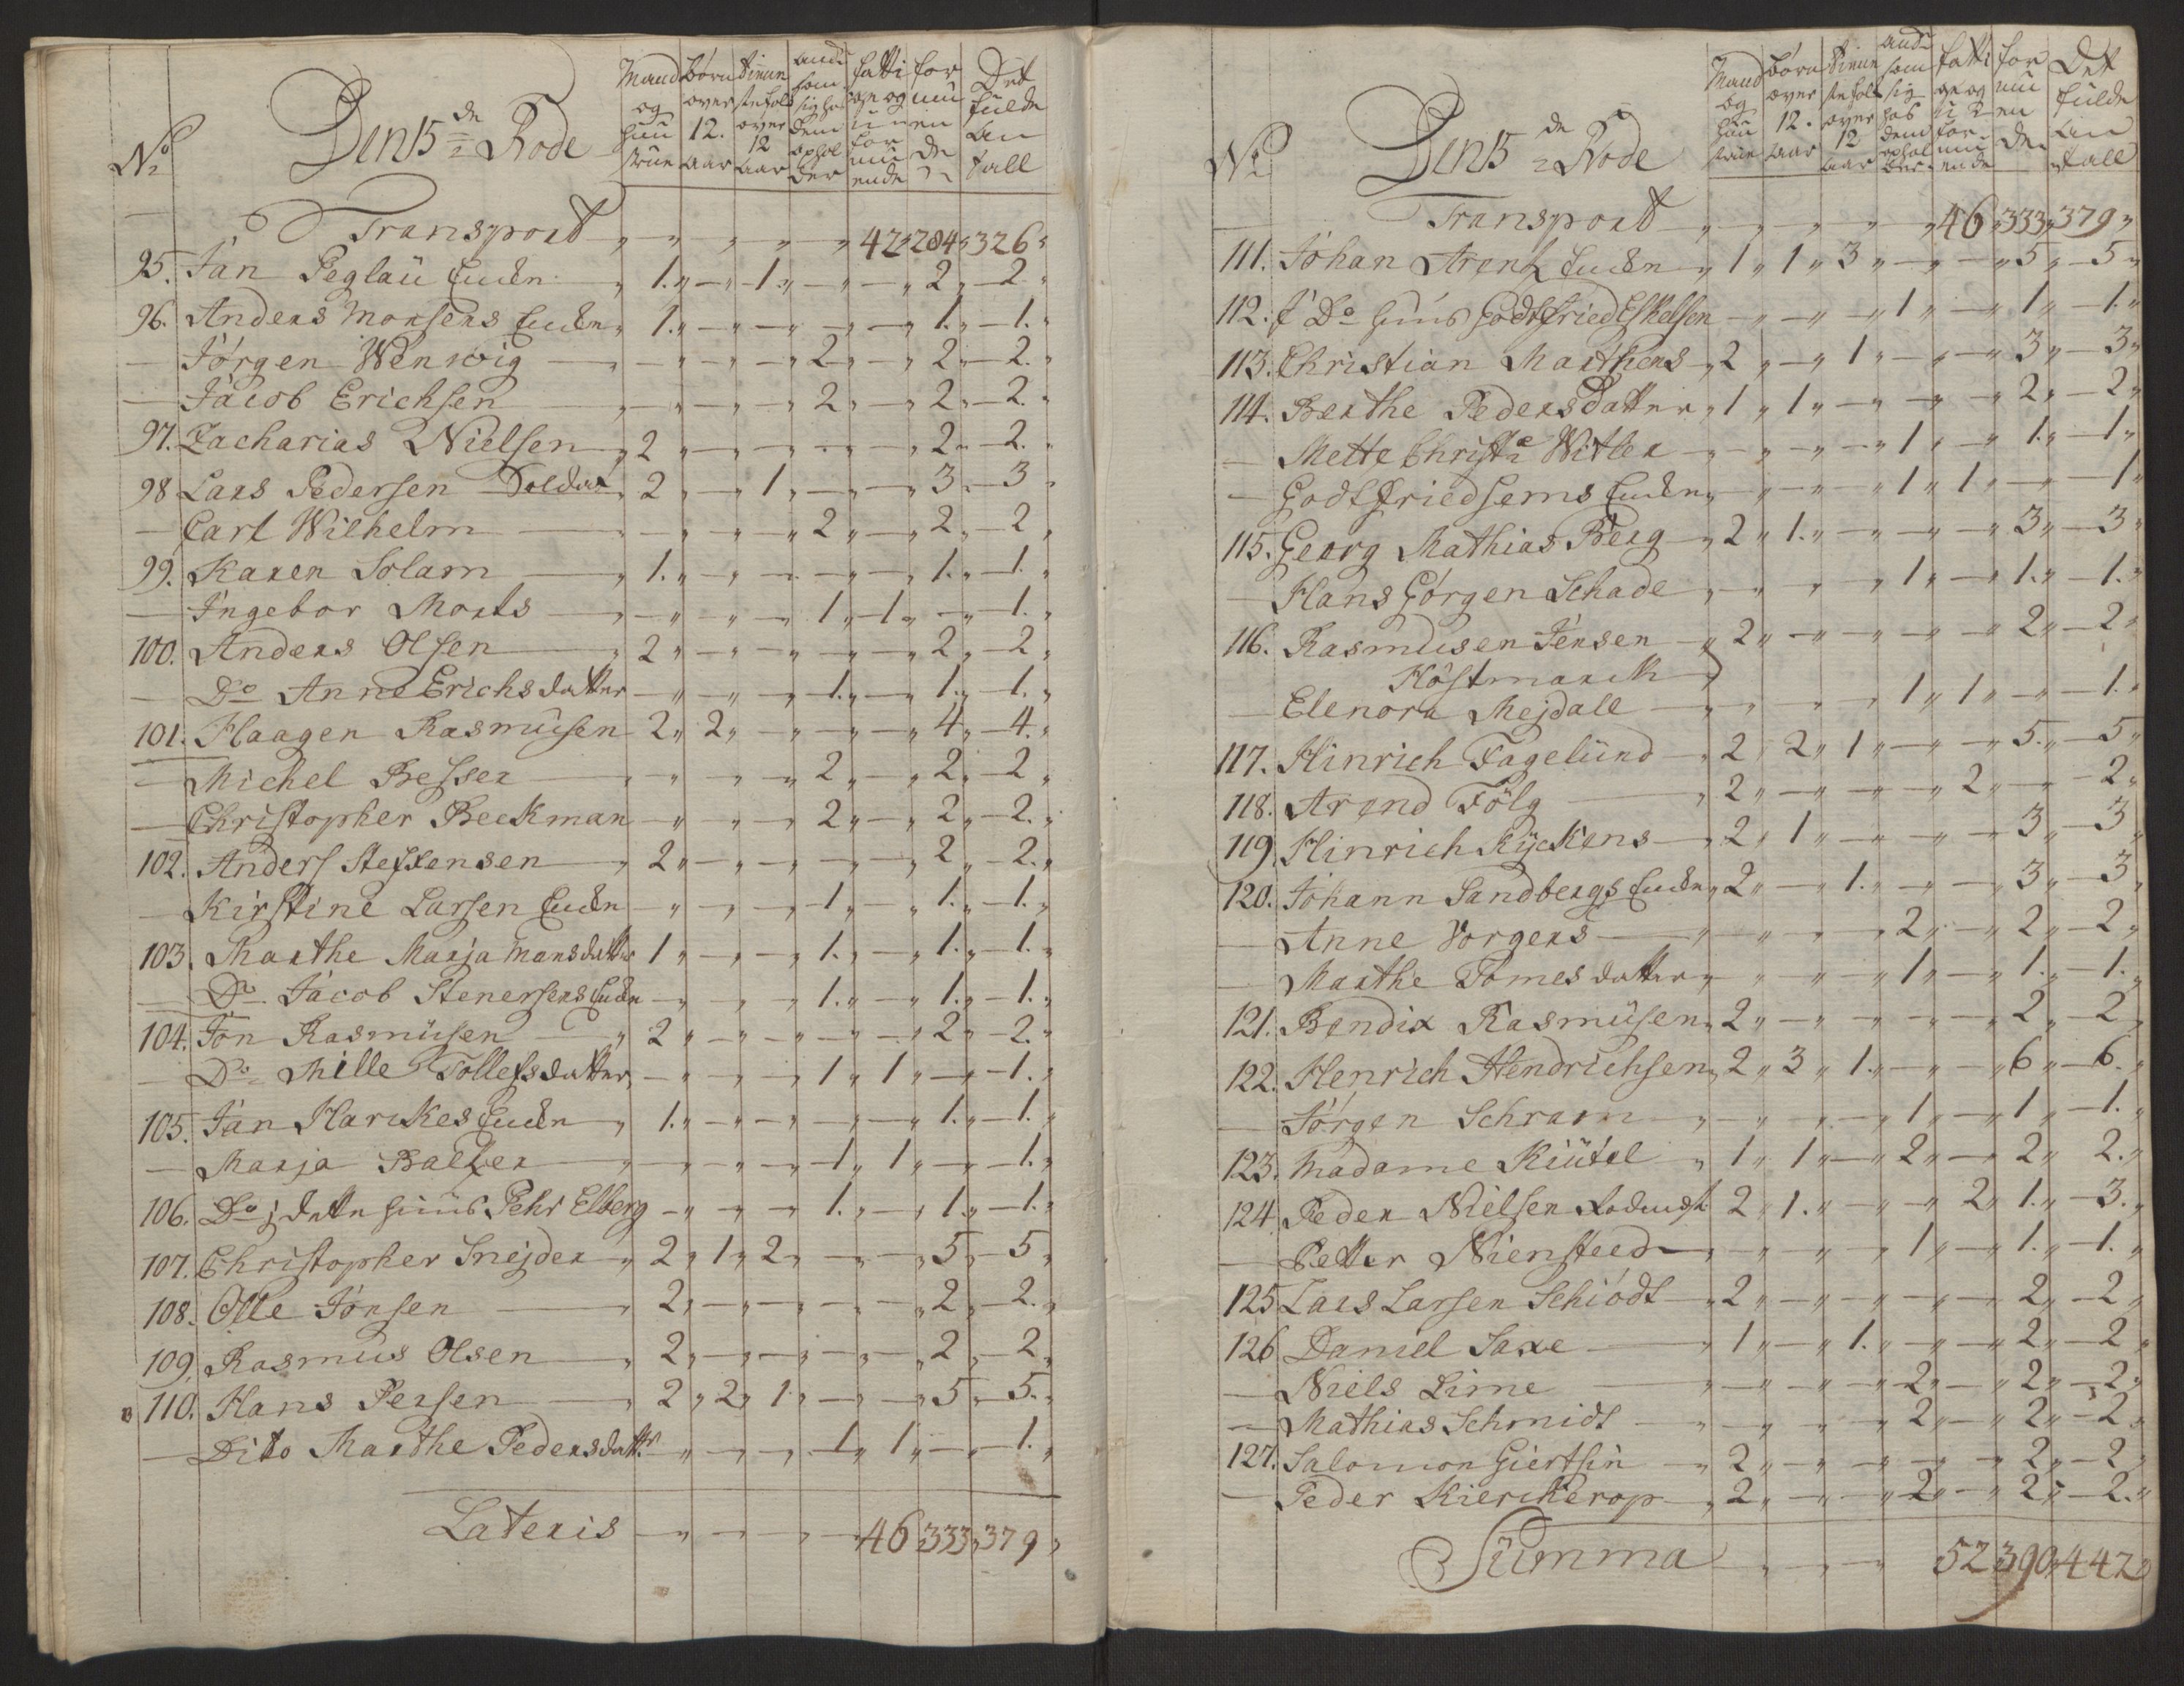 No Den 15de Rode Mand og Hustrue Børn over 12. aar Tienneste folk over 12 aar andre som sig hos dem opholder fattige og uformuende formuenden Det fulde antall
Transport " — " — " — " — " — 42 " 284 " 326 "
95. Jan Peglau Encken " 1. " — " 1 " — " — " 2 " — 2 "
96. Anders Monsens Encken " 1. " — " — " — " — " 1. " — 1. "
— Jørgen Wenwig — " — " — " — 2 " — " 2 " — 2. "
— Jacob Erichsen — " — " — " — 2 " — " 2 " — 2. "
97. Zacharias Nielsen " 2 " — " — " — " — " 2 " — 2. "
98 Lars Pedersen Soldat " 2 " — " 1 " — " — " 3 " — 3 "
— Carl Wilhelm — " — " — " — 2 " — " 2 " — 2 "
99. Karen Solam — " 1. " — " — " — " — " 1. " — 1. "
— Ingebor Morts — " — " — " — 1 " 1 " — " — 1. "
100. Anders Olsen — " 2 " — " — " — " — " 2 " — 2 "
— Do Anne Erichsdatter — " — " — " 1. " — " 1. " — 1. "
101. Haagen Rasmusen 2 " 2 " — " — " — " 4 " — 4. "
— Michel Besser — " — " — " — 2 " — " 2 " — 2 "
— Christopher Beckman — " — " — " 2 " — " 2 " — 2. "
102. Anders Steffensen — " 2 " — " — " — " — " 2 " — 2. "
— Kirstine Larsen Encken — " — " — " 1 " — " 1. " — 1. "
103. Marthe Marja Mansdatter 1 " — " — " 1. " — " 1. " — 1. "
— Do Jacob Stenersens Encken — " — " — " 1. " — " 1. " — 1. "
104. Jon Rasmusen — " 2 " — " — " — " — " 2 " — 2. "
— Do Mille Tollefsdatter — " — " — " 1 " 1 " — " — 1. "
105. Jan Harckes Encken — " 1. " — " — " — " — " 1. " — 1. "
— Marja Baltzer — " — " — " — 1 " 1 " — " — 1. "
106. Do j dette Huus Pehr Elberg — " — " — " 1. " — " 1. " — 1. "
107. Christopher Snejder " 2 " 1 " 2 " — " — " 5 " — 5 "
108. Olle Jonsen — " 2 " — " — " — " — " 2 " — 2. "
109. Rasmus Olsen — " 2 " — " — " — " — " 2 " — 2 "
110. Hans Persen — " 2 " 2 " 1 " — " — " 5 " — 5. "
— Dito Marthe Pedersdatter — " — " — " 1 " 1 " — " — 1. "
Lateris — " — " — " — " — 46 " 333 " 379 "
No Den 15de Rode Mand og Hustrue Børn over 12. aar Tienneste folk over 12 aar andre som sig hos dem opholder fattige og uformuende formuenden Det fulde antall
Transport — " — " — " — " — " 46 " 333 " 379 "
111. Johan Arentz Encken " 1 " 1 " 3 " — " — " 5 " — 5 "
112. J Do Huus Godtfried Eskelsen — " — " — " 1 " — " 1 " — 1. "
113. Christian Marthens " 2 " — " 1 " — " — " 3 " — 3 "
114. Berthe Pedersdatter " 1 " 1 " — " — " — " 2 " — 2 "
— Mette Christi Witler — " — " — " — " 1 " — " 1. " — 1 "
— Godtfried Sems Encken " — " — " — " 1 " 1 " — " — 1 "
115. Georg Mathias Berg — " 2 " 1. " — " — " — " 3 " — 3 "
— Hans Gørgen Schade " — " — " — " 1 " — " 1. " — 1. "
116. Rasmusen Jensen — " 2 " — " — " — " — " 2 " — 2 "
Høstmarck
— Elenora Mejdall — " — " — " — " 1 " 1 " — " — 1. "
117. Hinrich Fagelund — " 2 " 2 " 1 " — " — " 5. " — 5 "
118. Arend Følg — " 2 " — " — " — " 2 " — " — 2 "
119. Hinrich Ryckens — " 2 " 1 " — " — " — " 3 " — 3 "
120. Johann Sandbergs Encken " 2 " — " 1. " — " — " 3 " — 3 "
— Anne Vorgers — " — " — " — " 2 " — " 2 " — 2 "
— Marthe Tomesdatter " — " — " — " 1 " — " 1. " — 1. "
121. Bendix Rasmusen " 2 " — " — " — " — " 2 " — 2 "
122. Henrich Hendrichsen " 2 " 3 " 1. " — " — " 6 " — 6. "
— Jørgen Schram " — " — " — " 1 " — " 1 " — 1. "
123. Madame Kiütel " 1 " 1 " — " 2 " — " 2 " 2. "
124 Peder Nielsen 2 " 1. " — " — " 2 " 1. " — 3. "
— Petter Niensteed " — " — " — " 1 " — " 1. " — 1. "
125 Lars Larsen Schiødt " 2 " — " — " — " — " 2 " — 2 "
126 Daniel Saxe — " 1 " — " 1. " — " — " 2 " — 2 "
— Niels Lime — " — " — " — " 2 " — " 2 " — 2 "
— Mathias Schmidt — " — " — " — " 2 " — " 2 " — 2 "
127. Salomon Giertsin — " 2 " — " — " — " — " 2 " — 2 "
— Peder Kierckerop " 2 " — " — " 2 " — " 2 " — 2. "
Summa — " — " — " — 52 390 " 442 "